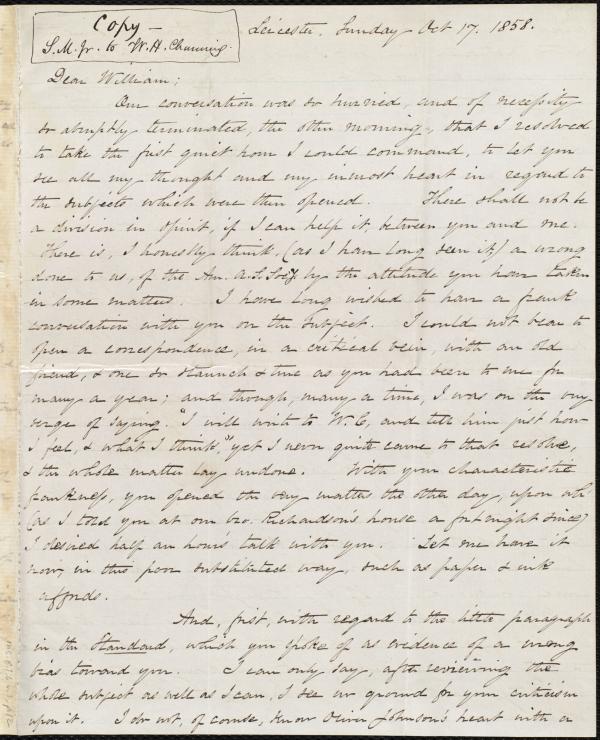 Copy —
S. M. Jr. to W. H. Channing.
Leicester, Sunday Oct 17. 1858.
Dear William;
Our conversation was so hurried, and of necessity
so abruptly terminated, the other morning, that I resolved
to take the first quiet hour I could command, to let you
see all my thought and my inmost heart in regard to
the subjects which were then opened. There shall not be
a division in spirit, if I can help it, between you and me.
There is, I honestly think, (as I have long seen it,) a wrong
done to us, of the Am. A. S. Soc'y by the attitude you have taken
in some matters. I have long wished to have a frank
conversation with you on the subject. I could not bear to
open a correspondence, in a critical vein, with an old
friend, & one so staunch & true as you had been to me for
many a year; and though, many a time, I was on the very
verge of saying, "I will write to W. C, and tell him just how
I feel, & what I think," yet I never quite came to that resolve,
& the whole matter lay undone. With your characteristic
frankness, you opened the very matter the other day, upon wh
(as I told you at our bro. Richardson's house a fortnight since)
I desired half an hour's talk with you. Let me have it
now, in this poor substituted way, such as paper & ink
affords.
And, first, with regard to the little paragraph
in the Standard, which you spoke of as evidence of a wrong
bias toward you. I can only say, after reviewing the
whole subject as well as I can, I see no ground for your criticism
upon it. I do not, of course, know Oliver Johnson's heart with a